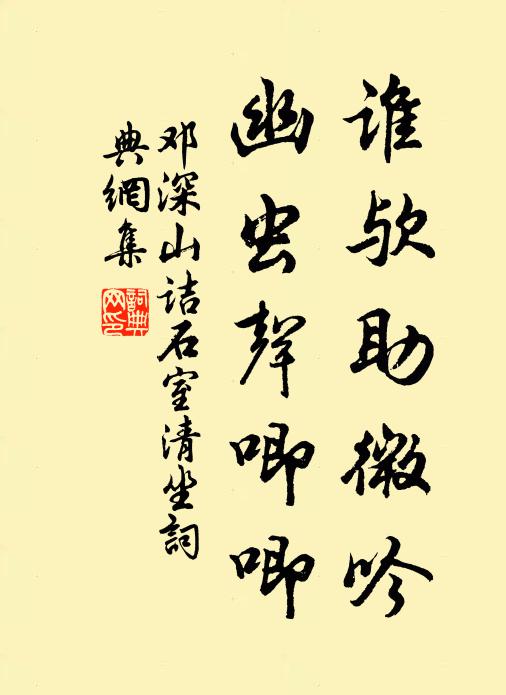 谁欤助微吟
幽虫聲唧唧
邓深山诘石室清坐詞
典網集
詞典网印